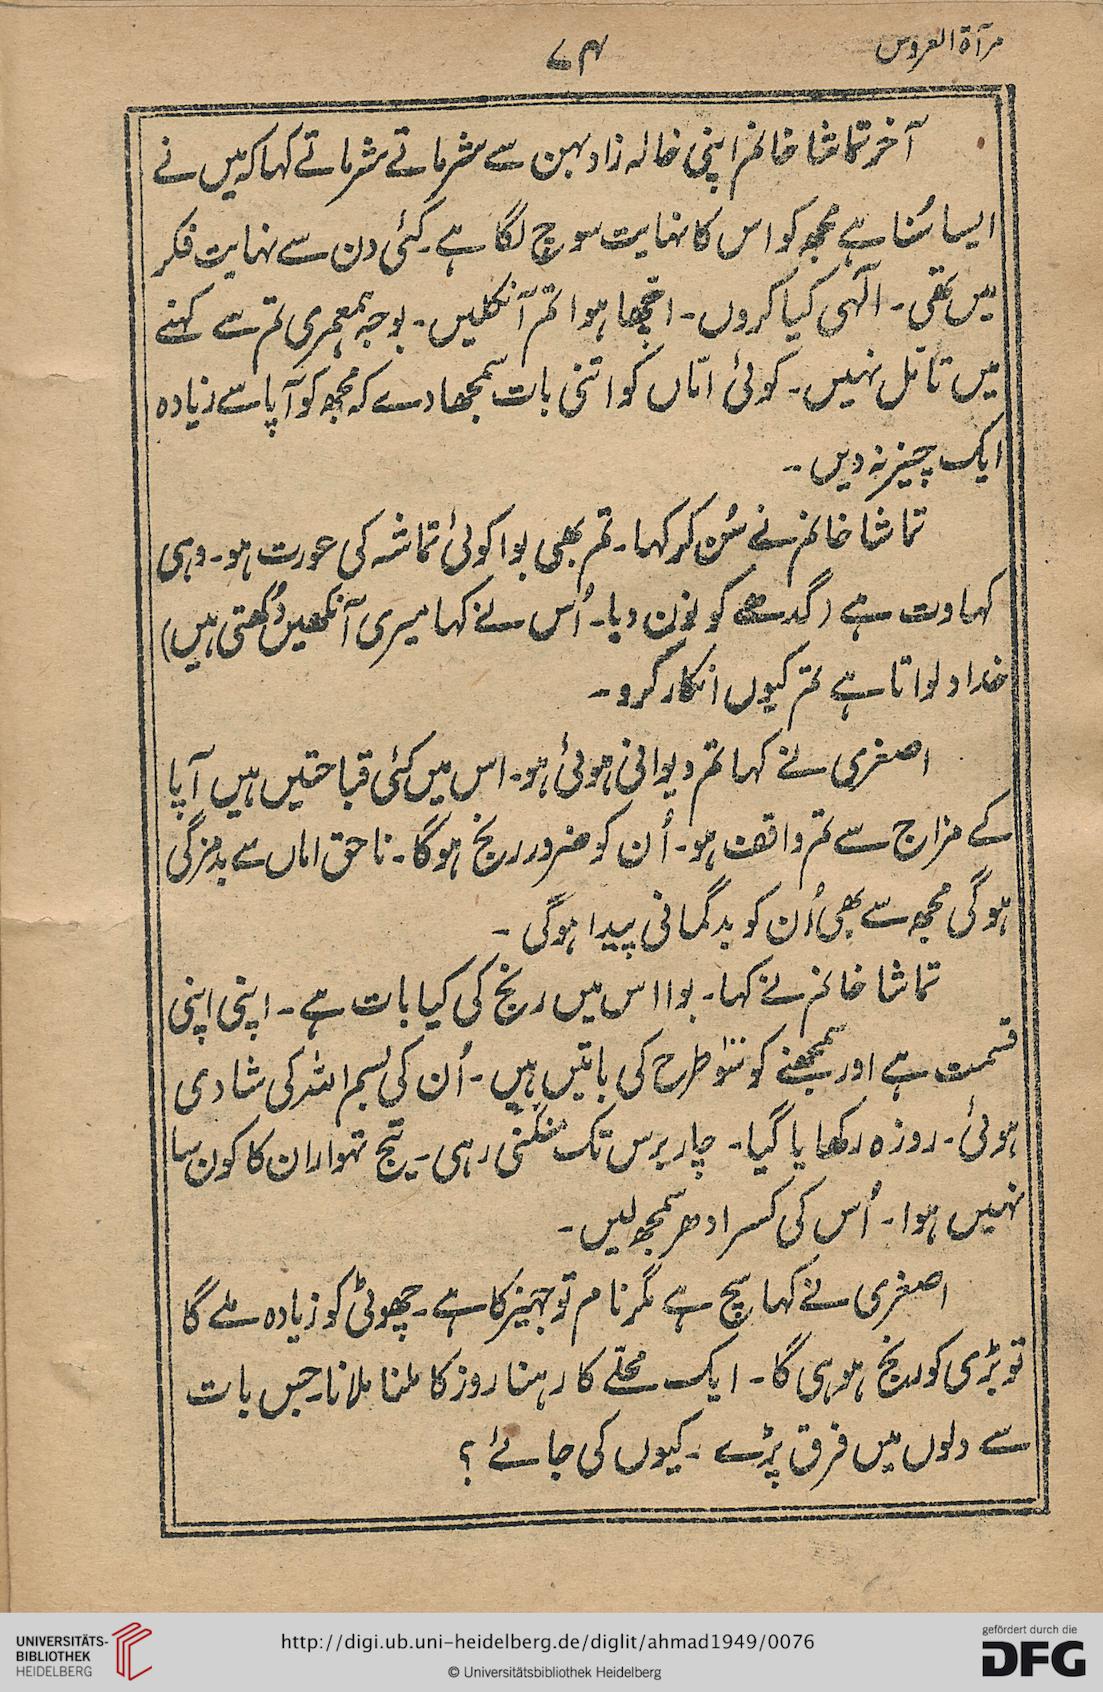 مرآۃ العروس
۷۴
آخر تماشا خانم اپنی خالہ زاد بہن سے شرماتے شرماتے کہا کہ میں نے
ایسا سُنا ہے مجھ کو اس کا نہایت سوچ لگا ہے۔ کئی دن سے نہایت فکر
میں تھی۔ الٰہی کیا کروں۔ اچھا ہوا تم آنکلیں۔ بوجہ ہمعمری تم سے کہنے
میں تامل نہیں۔ کوئی اتاں کو اتنی بات سمجھا دے کہ مجھ کو آپا سے زیادہ
ایک چیز نہ دیں۔
تماشا خانم نے سُن کر کہا۔ تم بھی بوا کوئی تماشہ کی عورت ہو۔ وہی
کہاوت ہے (گدھے کو نون دیا۔ اُس نے کہا میری آنکھیں دُکھتی ہیں)
خدا دلواتا ہے تم کیوں انکار کرو۔
اصغری نے کہا تم دیوانی ہوئی ہو۔ اس میں کئی قباحتیں ہیں آپا
کے مزاج سے تم واقف ہو۔ اُن کو ضرور رنج ہوگا۔ ناحق اماں سے بدمزگی
ہوگی مجھ سے بھی اُن کو بدگمانی پیدا ہوگی۔
تماشا خانم نے کہا۔ بوا اس میں رنج کی کیا بات ہے۔ اپنی اپنی
قسمت ہے اور سمجھنے کو سَو طرح کی باتیں ہیں۔ اُن کی بسم اللہ کی شادی
ہوئی۔ روزہ رکھایا گیا۔ چار برس تک منگنی رہی۔ تیج تہوار ان کا کون سا
نہیں ہوا۔ اُس کی کسر ادھر سمجھ لیں۔
اصغری نے کہا سچ ہے مگر نام تو جہیز کا ہے۔ چھوٹی کو زیادہ ملے گا
تو بڑی کو رنج ہو ہی گا۔ ایک محلّے کا رہنا روز کا ملنا ملانا۔ جس بات
سے دلوں میں فرق پڑے۔ کیوں کی جائے؟
UNIVERSITÄTS-
BIBLIOTHEK
HEIDELBERG
http://digi.ub.uni-heidelberg.de/diglit/ahmad1949/0076
© Universitätsbibliothek Heidelberg
gefördert durch die
DFG